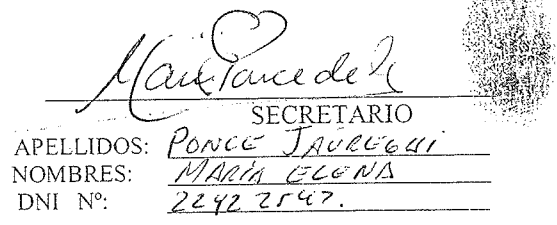 María Ponce de
SECRETARIO
APELLIDOS: PONCE JAUREGUI
NOMBRES: MARÍA ELENA
DNI Nº: 22422547.